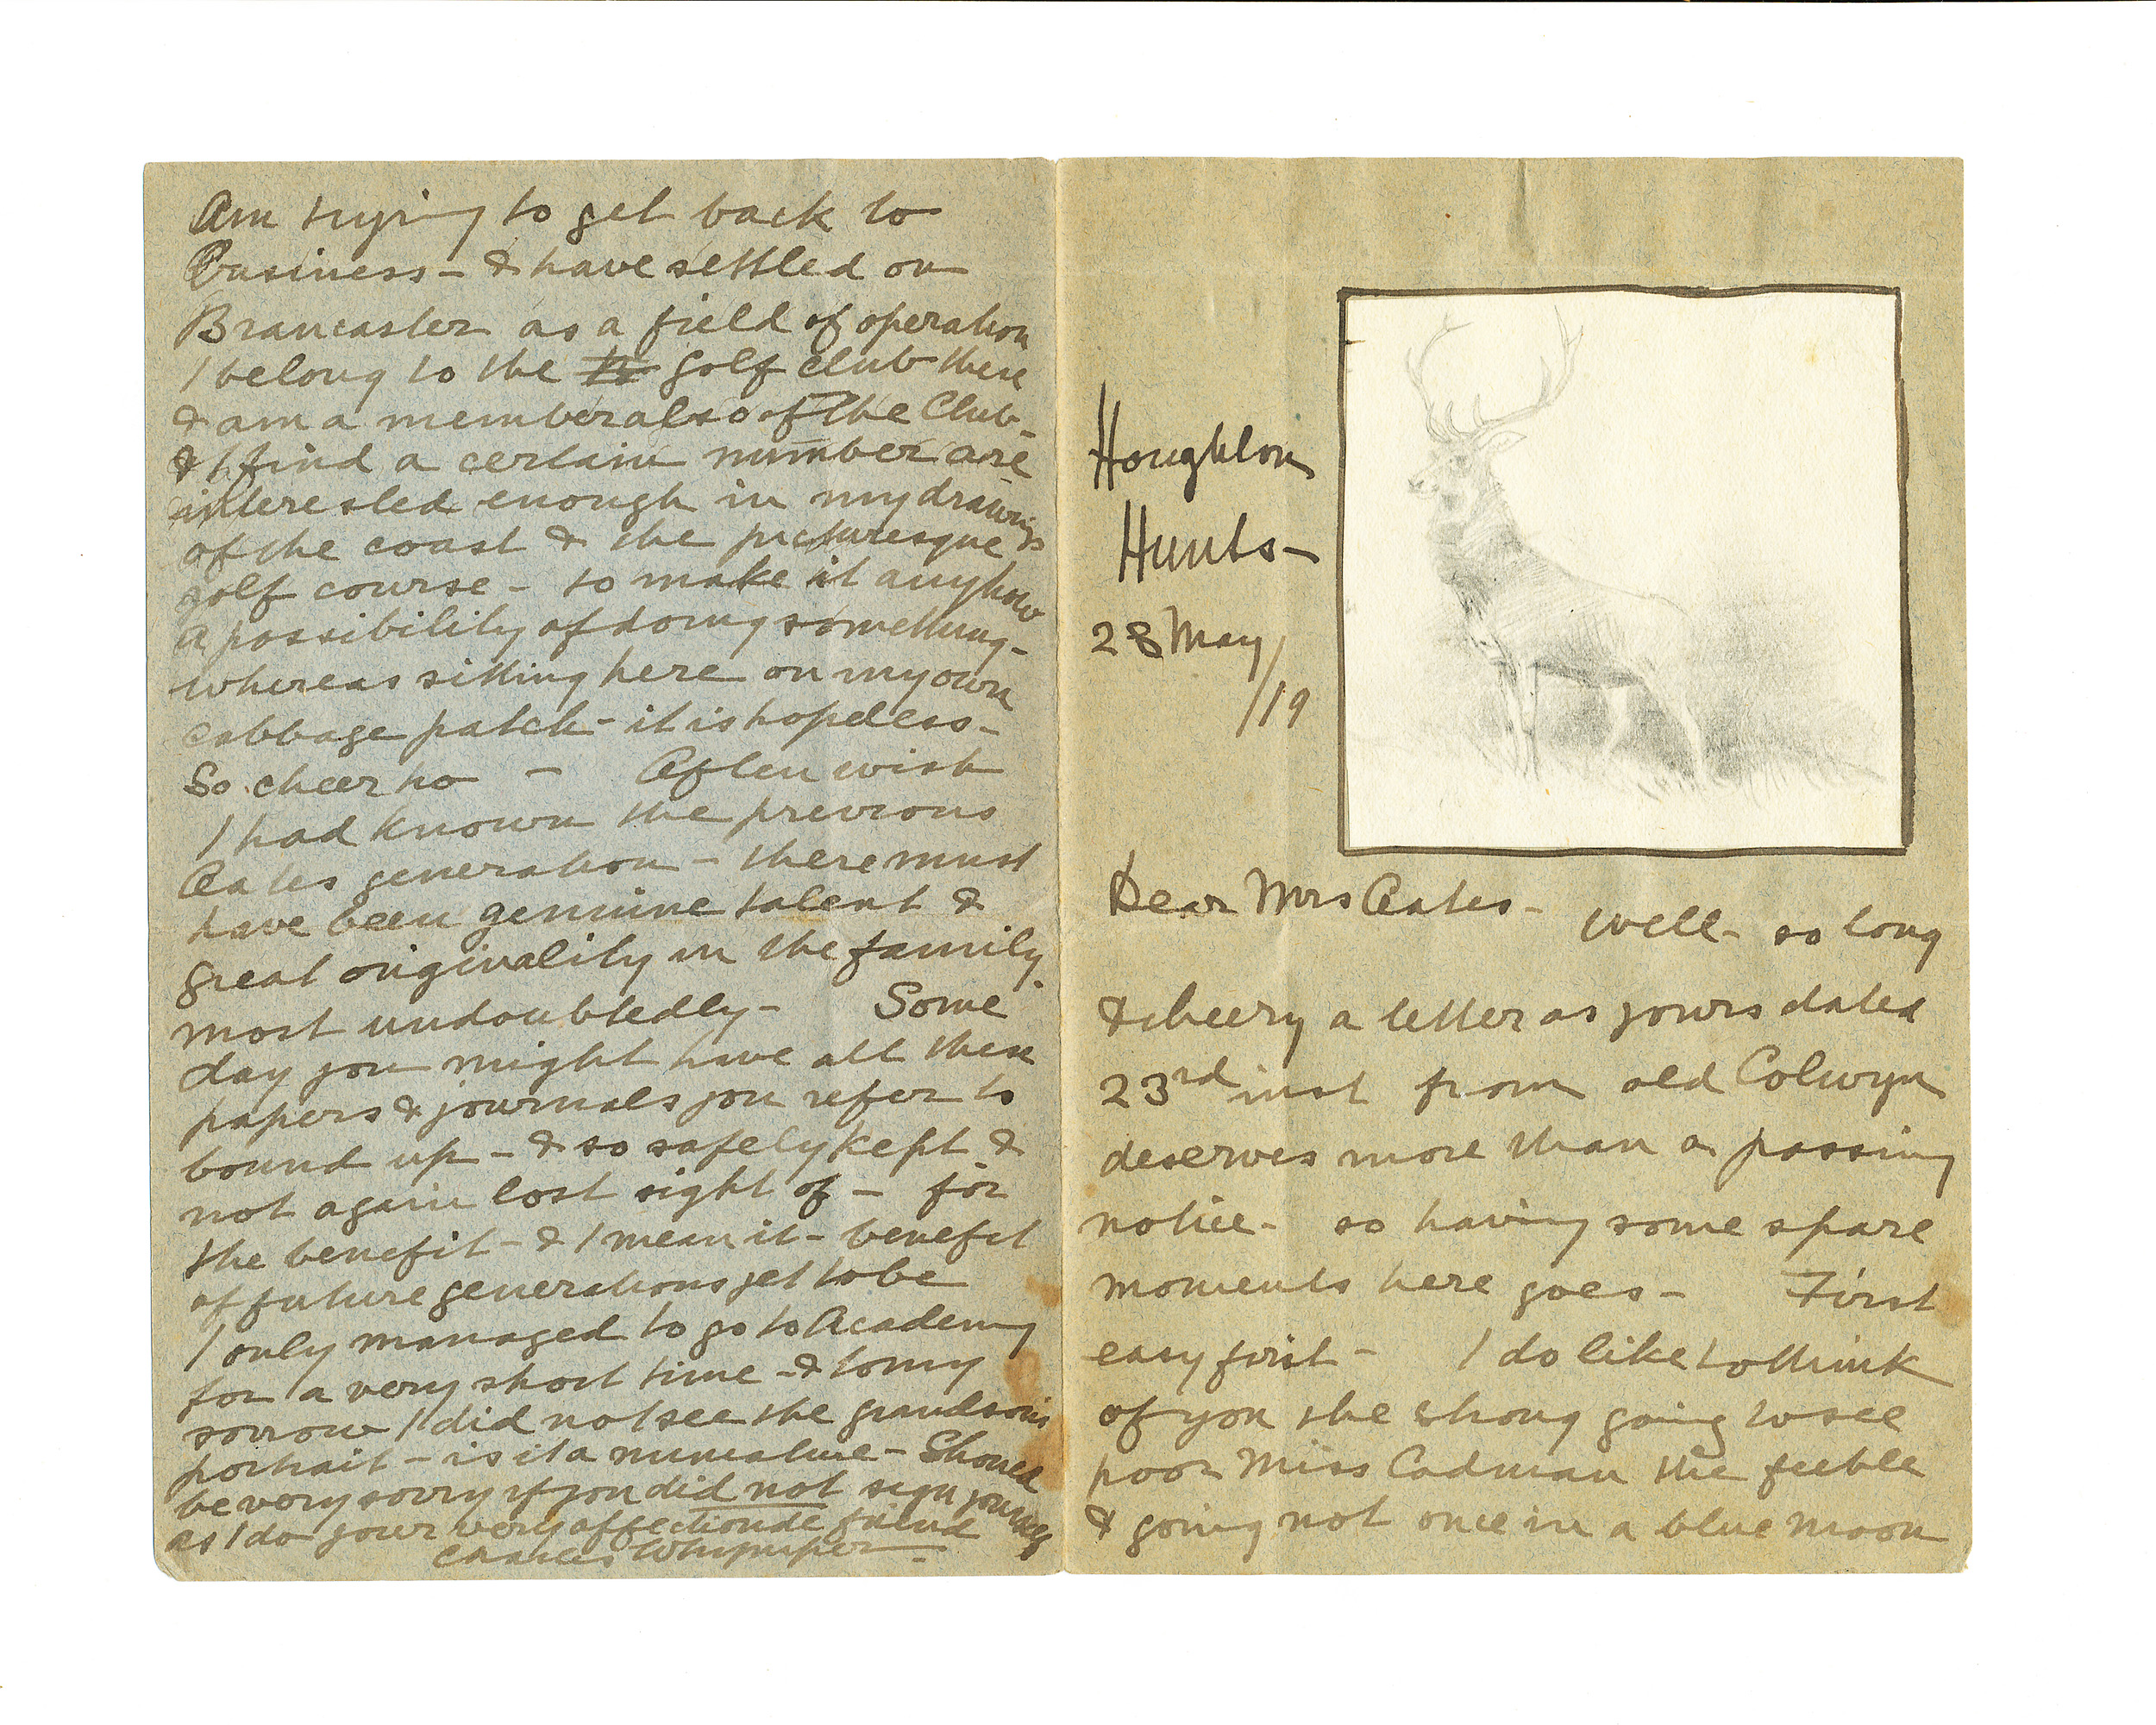 Houghton
Hunts -
28 May
/19
Dear Mrs Oates - Well - so long
& cheery a letter as yours dated
23rd inst from old Colwyn
deserves more than a passing
notice - so having some spare
moments here goes - First
easy first - I do like to think
of you the strong going to see
poor Miss Cadman the feeble
& going not once in a blue moon
Am trying to get back to
Business - & have settled on
Brancaster as a field of operation
I belong to the golf club there
& am a member also of the Club -
& I find a certain number are
interested enough in my drawings
of the coast & the picturesque
golf course - to make it anyhow
a possibility of doing something -
whereas sitting here on my own
cabbage patch - it is hopeless -
So cheer ho - Often wish
I had known the previous
Oates generation - there must
have been genuine talent &
great originality in the family -
most undoubtedly - Some
day you might have all these
papers & journals you refer to
bound up - & so safely kept &
not again lost sight of - for
the benefit - & I mean it - benefit
of future generations yet to be
I only managed to go to Academy
for a very short time - & to my
sorrow I did not see the grandsons
portrait - is it a miniature - Should
be very sorry if you did not sign yourself
as I do your very affectionate friend
Charles Whymper -